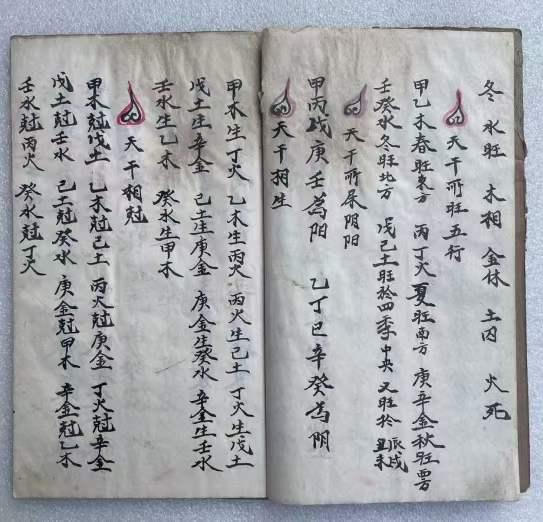 冬水旺 木相 金休 土囚 火死
天干所旺五行
甲乙木春旺东方 丙丁火夏旺南方 庚辛金秋旺西方
壬癸水冬旺北方 戊己土旺於四季中央 又旺於辰戌丑未
天干所属阴阳
甲丙戊庚壬为阳 乙丁己辛癸为阴
天干相生
甲木生丁火 乙木生丙火 丙火生己土 丁火生戊土
戊土生辛金 己土生庚金 庚金生癸水 辛金生壬水
壬水生乙木 癸水生甲木
天干相冠
甲木冠戊土 乙木冠己土 丙火冠庚金 丁火冠辛金
戊土冠壬水 己土冠癸水 庚金冠甲木 辛金冠乙木
壬水冠丙火 癸水冠丁火